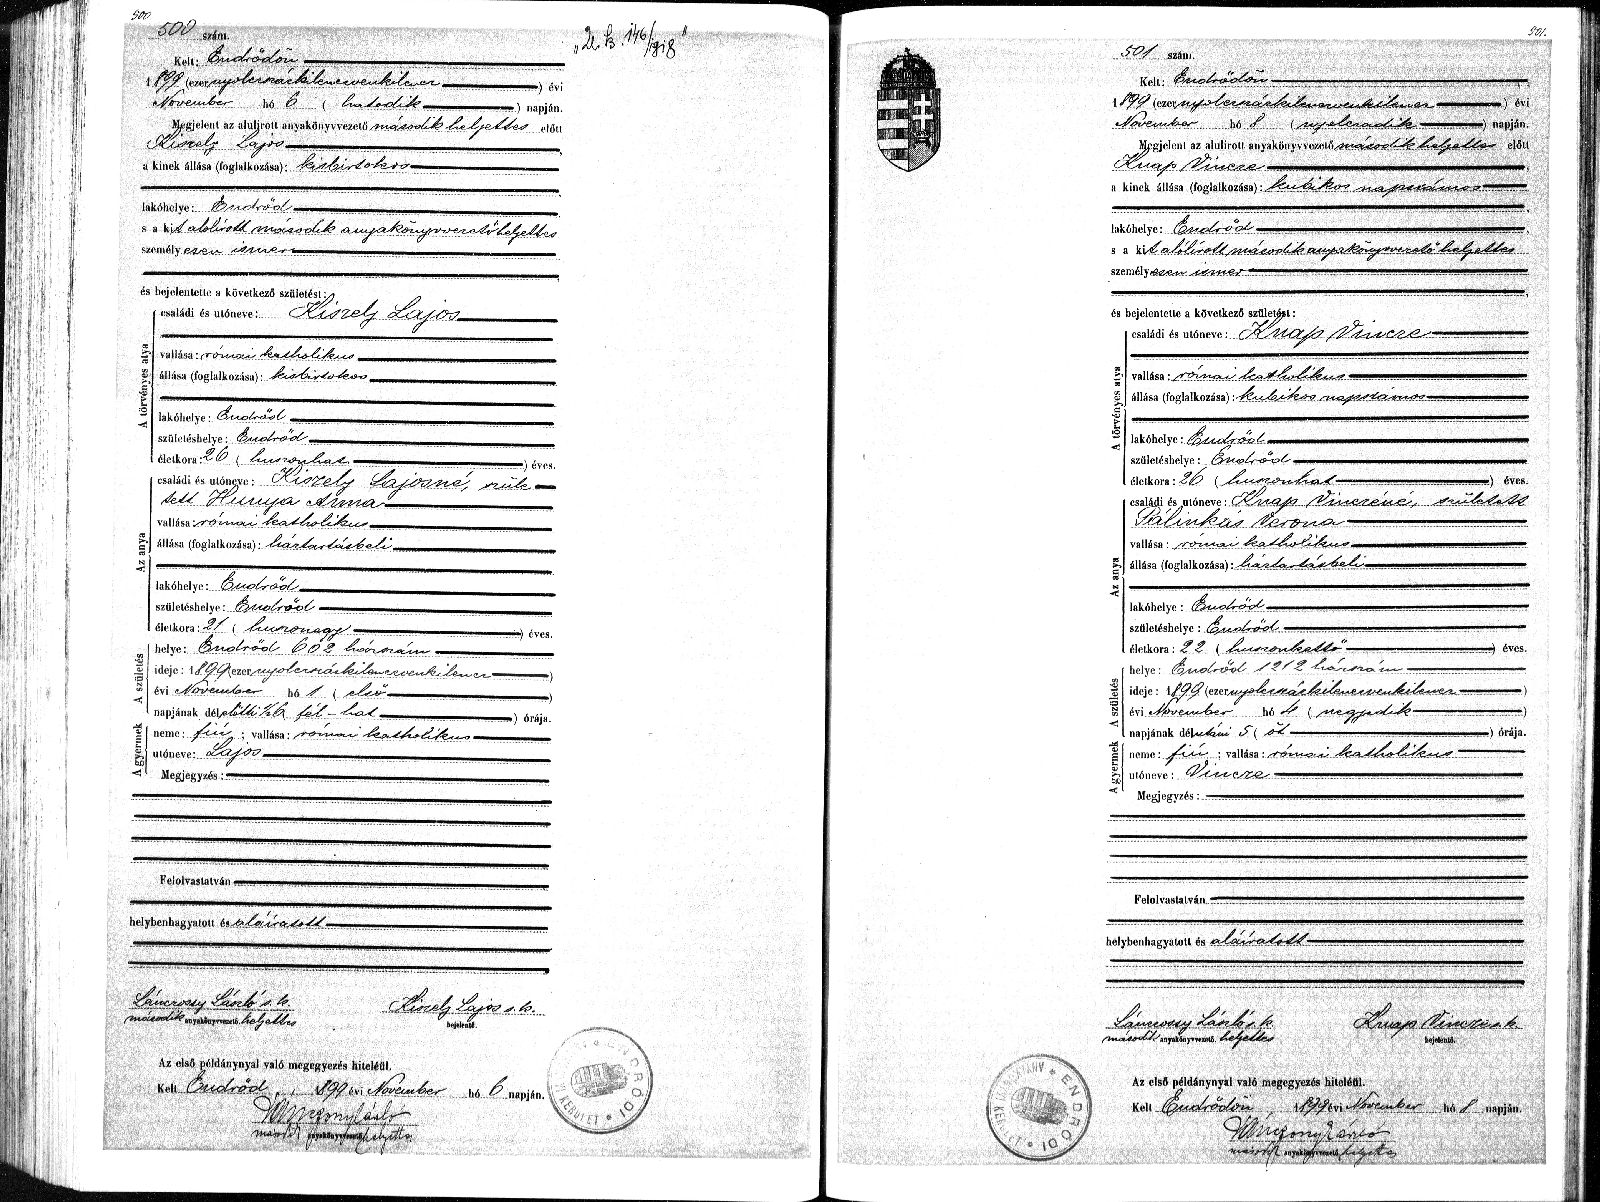 500
500 szám.
Kelt: Endrődön
1899 (ezernyolczszázkilenczvenkilencz) évi
November hó 6 (hatodik) napján.
Megjelent az alulirott anyakönyvvezető második helyettes előtt
Kiszely Lajos
a kinek állása (foglalkozása): kisbirtokos
lakóhelye: Endrőd
s a kit alólirott második anyakönyvvezető helyettes
személyesen ismer
és bejelentette a következő születést:
A törvényes atya
családi és utóneve: Kiszely Lajos
vallása: római katholikus
állása (foglalkozása): kisbirtokos
lakóhelye: Endrőd
születéshelye: Endrőd
életkora: 26 (huszonhat) éves.
Az anya
családi és utóneve: Kiszely Lajosné, szüle
tett Hunya Anna
vallása: római katholikus
állása (foglalkozása): háztartásbeli
lakóhelye: Endrőd
születéshelye: Endrőd
életkora: 21 (huszonegy) éves.
A születés
helye: Endrőd 602 házszám
ideje: 1899 (ezernyolczszázkilenczvenkilencz)
évi November hó 1 (első)
napjának délelőtti ½6 fél-hat) órája.
A gyermek
neme: fiú; vallása: római katholikus
utóneve: Lajos
Megjegyzés:
Felolvastatván
helybenhagyatott és aláiratott
Lánczossy László s. k. Kiszely Lajos s. k.
második anyakönyvvezető helyettes bejelentő.
Az első példánynyal való megegyezés hiteléül.
Kelt Endrőd, 1899 évi November hó 6 napján.
második anyakönyvvezető helyette
ENDRŐDI
VI. KERÜLET
501.
501 szám.
Kelt: Endrődön
1899 (ezernyolczszázkilenczvenkilencz) évi
November hó 8 (nyolczadik) napján.
Megjelent az alulirott anyakönyvvezető második helyettes előtt
Knap Vincze
a kinek állása (foglalkozása): kubikos napszámos
lakóhelye: Endrőd
s a kit alólirott második anyakönyvvezető helyettes
személyesen ismer
és bejelentette a következő születést:
A törvényes atya
családi és utóneve: Knap Vincze
vallása: római katholikus
állása (foglalkozása): kubikos napszámos
lakóhelye: Endrőd
születéshelye: Endrőd
életkora: 26 (huszonhat) éves.
Az anya
családi és utóneve: Knap Vinczéné, született
Pálinkás Verona
vallása: római katholikus
állása (foglalkozása): háztartásbeli
lakóhelye: Endrőd
születéshelye: Endrőd
életkora: 22 (huszonkettő) éves.
A születés
helye: Endrőd 1212 házszám
ideje: 1899 (ezernyolczszázkilenczvenkilencz)
évi November hó 4 (negyedik)
napjának délutáni 5 (öt) órája.
A gyermek
neme: fiú; vallása: római katholikus
utóneve: Vincze
Megjegyzés:
Felolvastatván
helybenhagyatott és aláiratott
Lánczossy László s. k. Knap Vincze s. k.
második anyakönyvvezető helyettes bejelentő.
Az első példánynyal való megegyezés hiteléül.
Kelt Endrődön 1899 évi November hó 8 napján.
második anyakönyvvezető helyette
ENDRŐDI
VI. KERÜLET